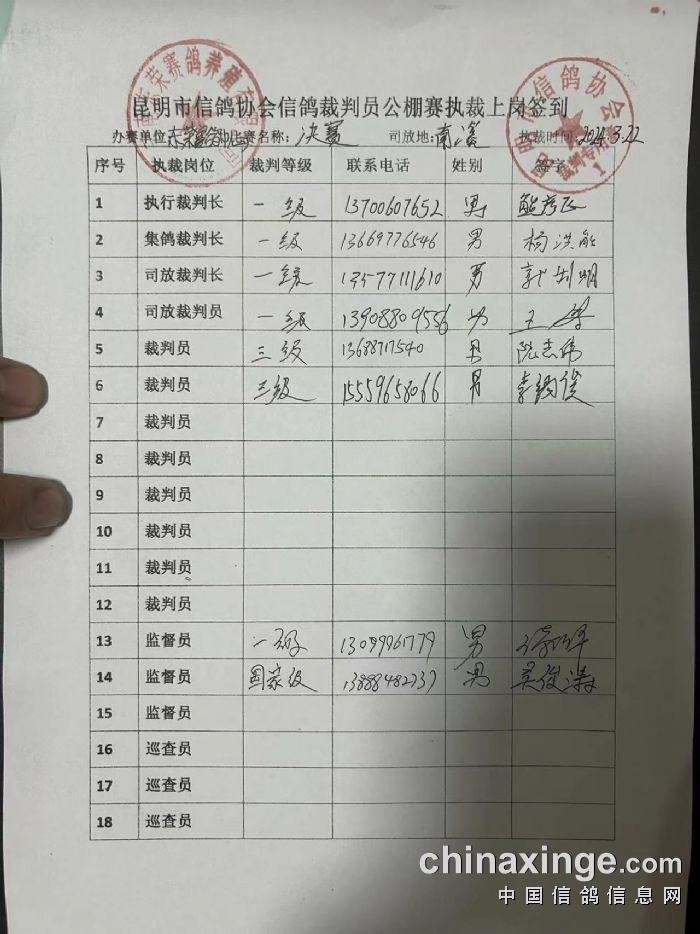 昆明市信鸽协会信鸽裁判员公棚赛执裁上岗签到
办赛单位: 比赛名称: 决赛 司放地: 南溪 执裁时间: 2024.3.22
序号 执裁岗位 裁判等级 联系电话 性别 签字
1 执行裁判长 一级 13700607652 男
2 集鸽裁判长 一级 13669776546 男 杨洪能
3 司放裁判长 一级 13577111610 男
4 司放裁判员 一级 13908809556 男 王
5 裁判员 三级 13688717540 男 阮志伟
6 裁判员 三级 15559658066 男 李
7 裁判员
8 裁判员
9 裁判员
10 裁判员
11 裁判员
12 裁判员
13 监督员 一级 13099961779 男
14 监督员 国家级 13888482737 男 吴俊涛
15 监督员
16 巡查员
17 巡查员
18 巡查员
chinaxinge.com
中国信鸽信息网